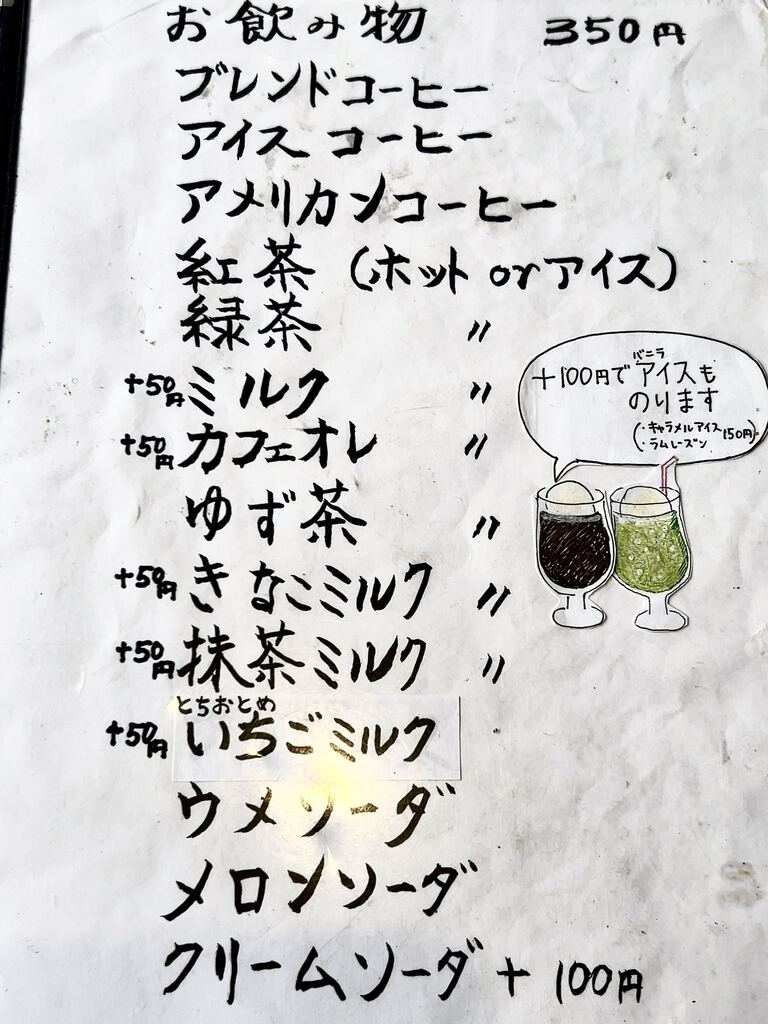 お飲み物 350円
ブレンドコーヒー
アイスコーヒー
アメリカンコーヒー
紅茶 (ホット or アイス)
緑茶 〃
+50円 ミルク 〃
+50円 カフェオレ 〃
ゆず茶 〃
+50円 きなこミルク 〃
+50円 抹茶ミルク 〃
とちおとめ
+50円 いちごミルク
ウメソーダ
メロンソーダ
クリームソーダ + 100円
バニラ
+100円でアイスも
のります
(・キャラメルアイス 150円)
・ラムレーズン